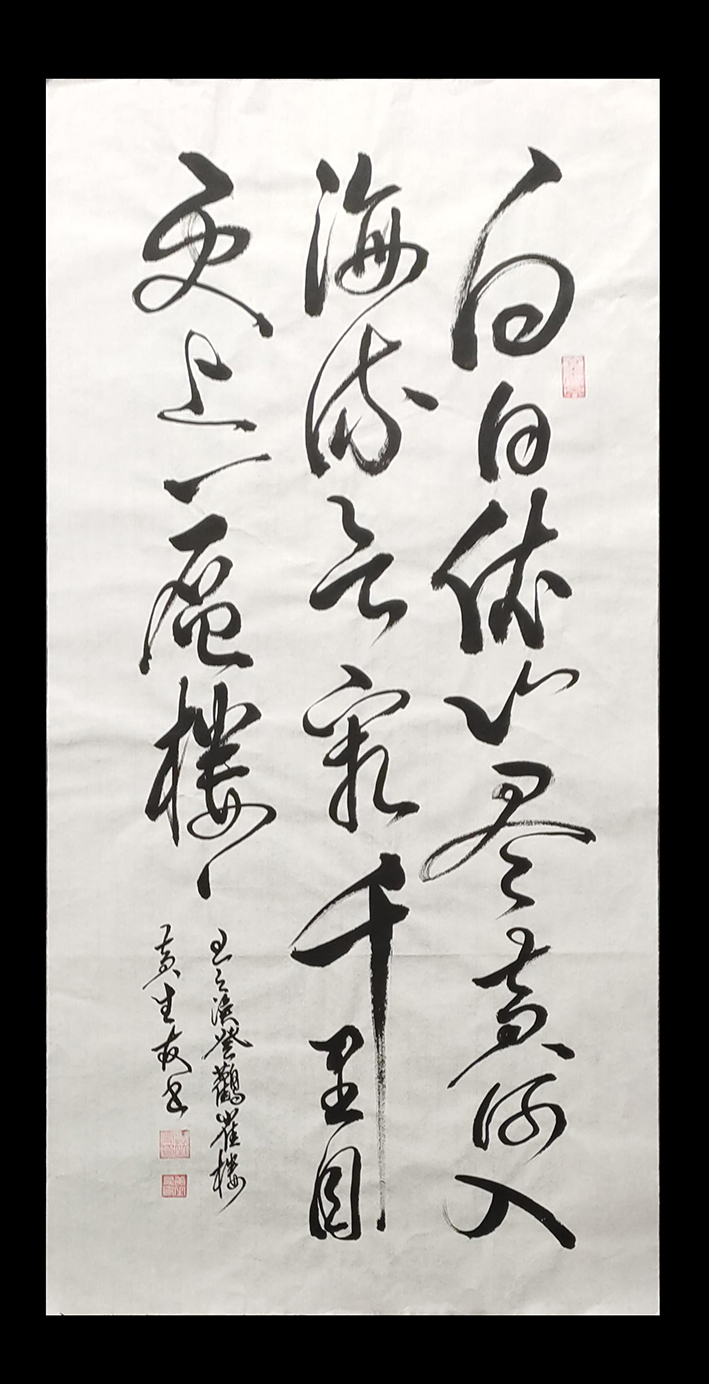 白日依山尽黄河入
海流欲窮千里目
更上一层樓
王之涣登鸛雀楼
黄生友书